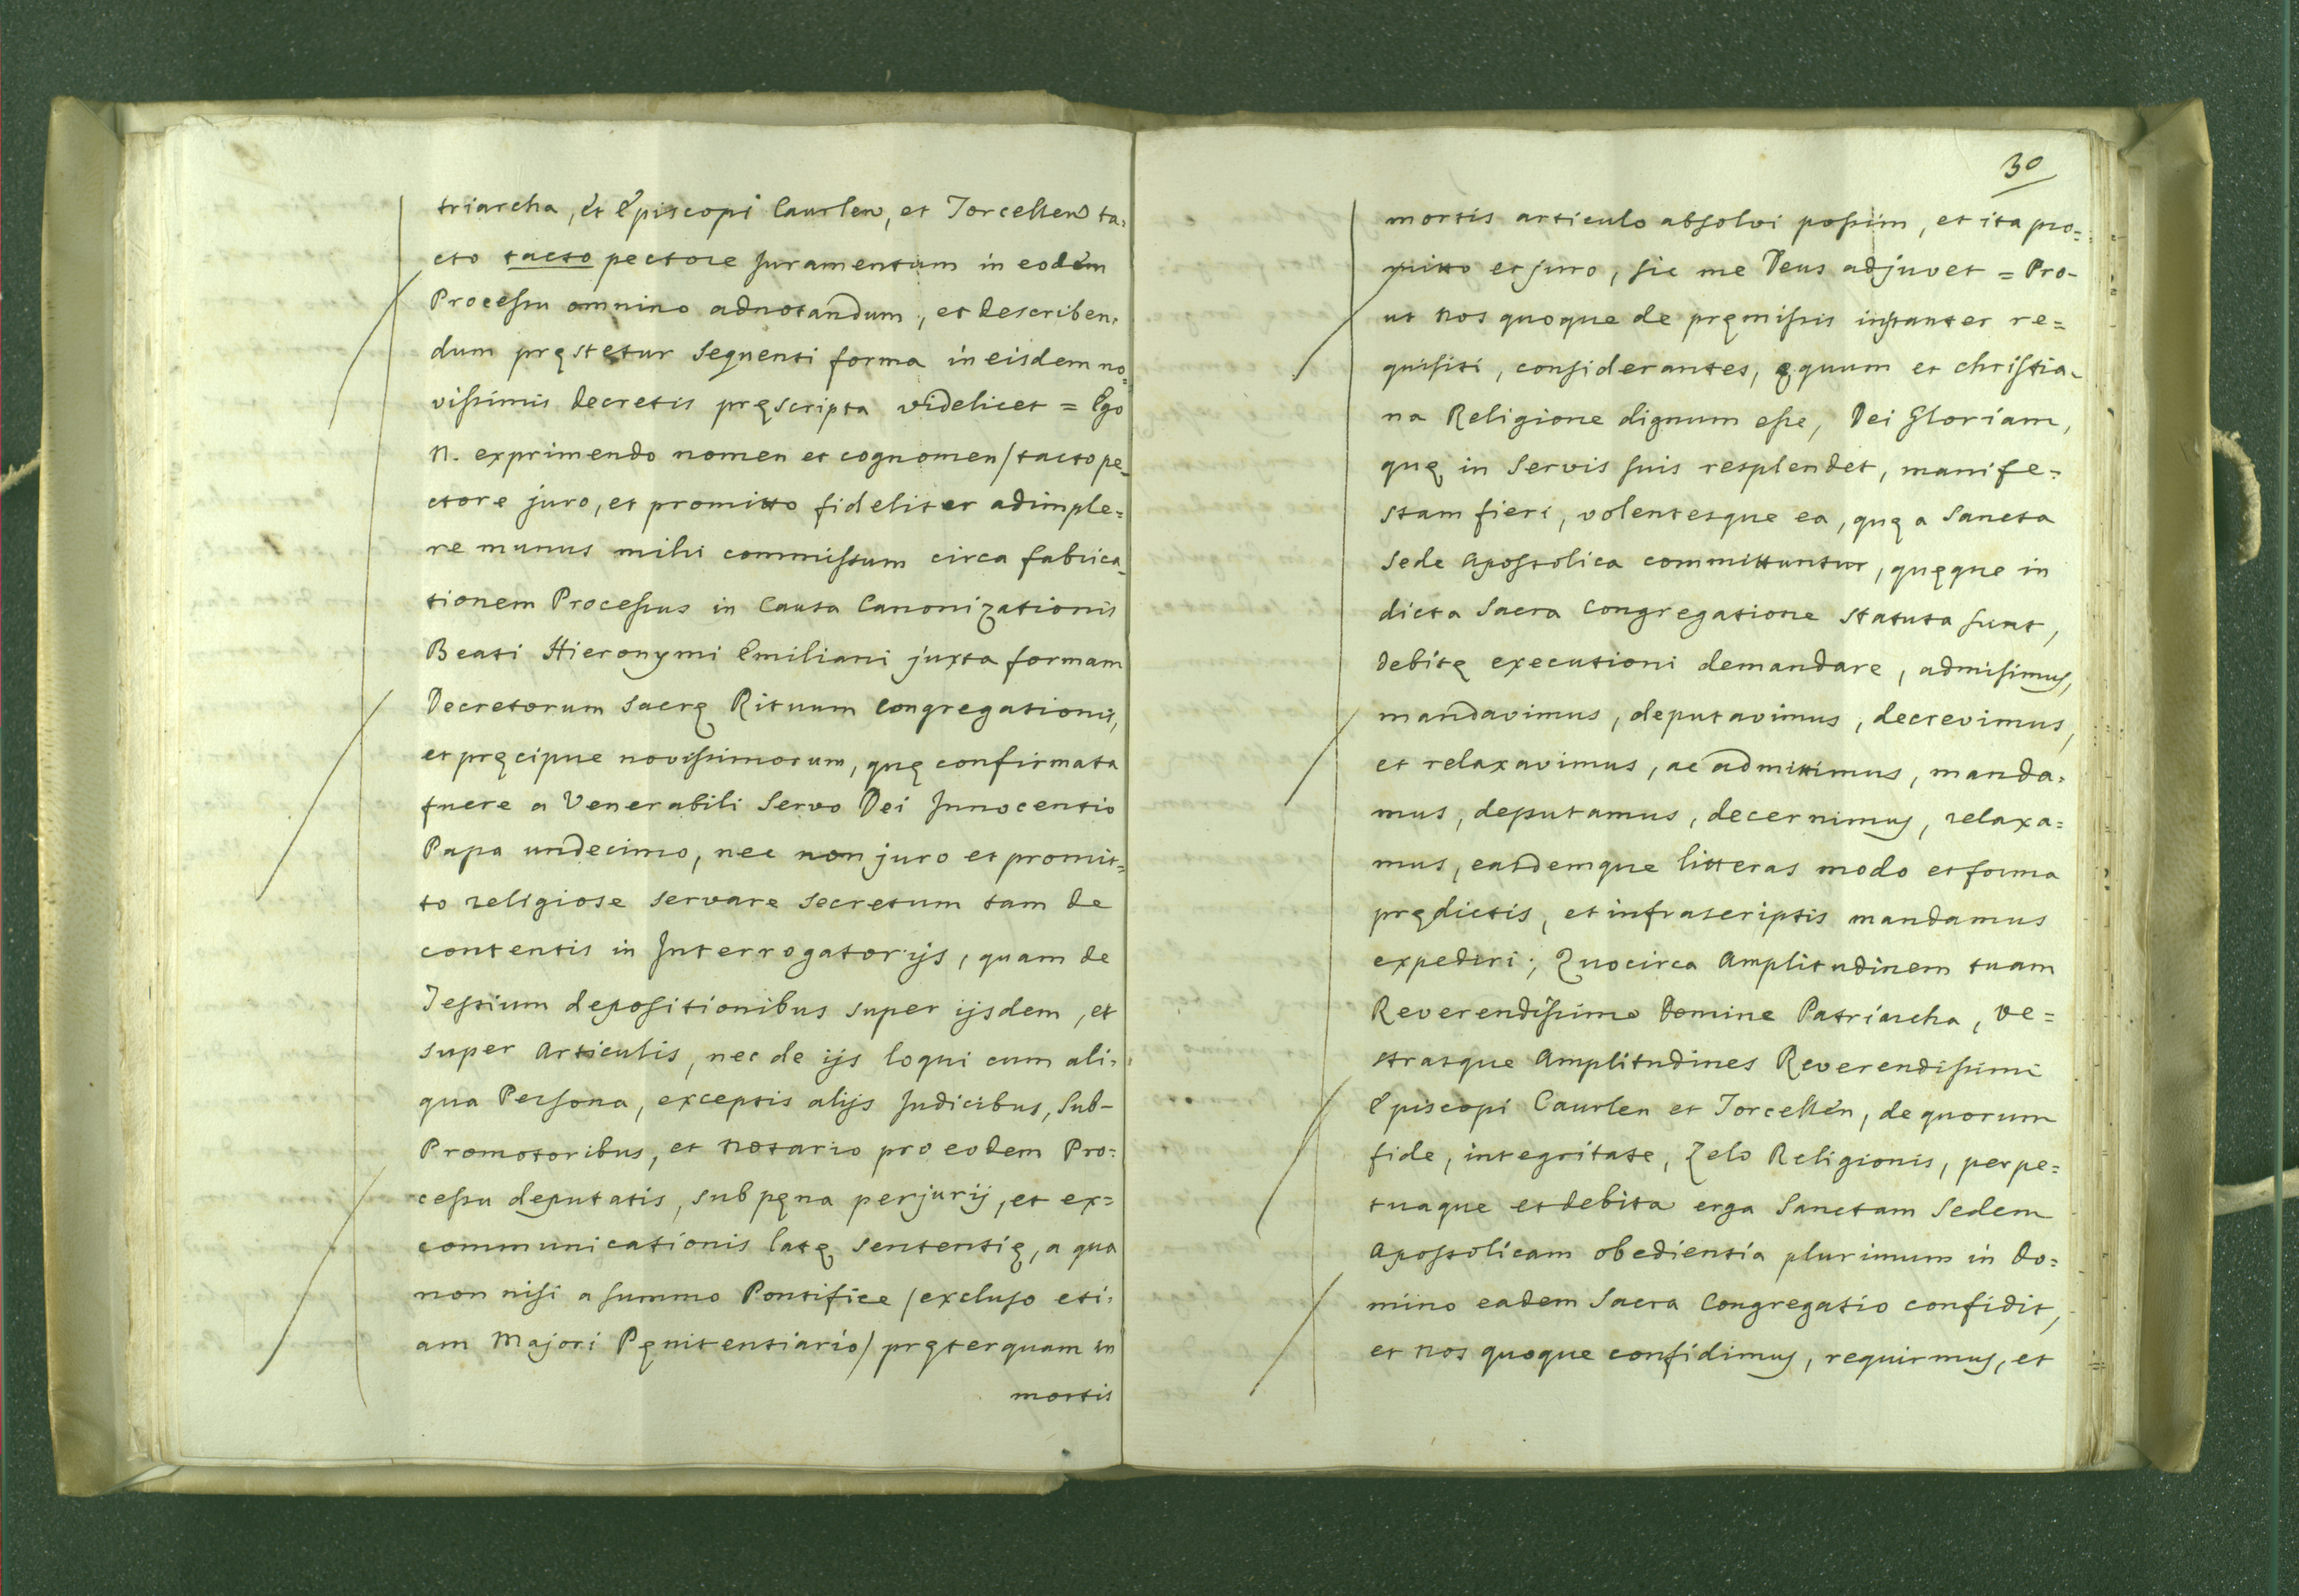 triarcha, et Episcopi Caurlen, et Torcellen ta=
cto tacto pectore Juramentum in eodem
Processu omnino adnotandum, et describen=
dum pręstetur sequenti forma in eisdem no=
vissimis Decretis pręscripta videlicet = Ego
N. exprimendo nomen et cognomen / tacto pe=
ctore juro, et promitto fideliter adimple=
re munus mihi commissum circa fabrica=
tionem Processus in Causa Canonizationis
Beati Hieronymi Emiliani juxta formam
Decretorum Sacrę Rituum Congregationis,
et pręcipue novissimorum, quę confirmata
fuere a Venerabili Servo Dei Innocentio
Papa undecimo, nec non juro et promit=
to religiose servare secretum tam de
contentis in Interrogatorijs, quam de
Testium depositionibus super ijsdem, et
super Articulis, nec de ijs loqui cum ali=
qua Persona, exceptis alijs Judicibus, Sub-
Promotoribus, et Notario pro eodem Pro=
cessu deputatis, sub pęna perjurij, et ex=
communicationis latę sententię, a qua
non nisi a summo Pontifice / excluso eti=
am Majori Pęnitentiario / pręterquam in
mortis
30
mortis articulo absolvi possim, et ita pro=
mitto et juro, sic me Deus adjuvet = Pro-
ut Nos quoque de pręmissis instanter re=
quisiti, considerantes, ęquum et christia-
na Religione dignum esse, Dei Gloriam,
quę in Servis suis resplendet, manife=
stam fieri, volentesque ea, quę a Sancta
Sede Apostolica committuntur, quęque in
dicta Sacra Congregatione statuta sunt,
debitę executioni demandare, admisimus,
mandavimus, deputavimus, decrevimus,
et relaxavimus, ac admittimus, manda=
mus, deputamus, decernimus, relaxa=
mus, easdemque litteras modo et forma
prędictis, et infrascriptis mandamus
expediri; Quocirca Amplitudinem tuam
Reverendissime Domine Patriarcha, ve=
strasque Amplitudines Reverendissimi
Episcopi Caurlen et Torcellen, de quorum
fide, integritate, Zelo Religionis, perpe=
tuaque et debita erga Sanctam Sedem
Apostolicam obedientia plurimum in Do=
mino eadem Sacra Congregatio confidit,
et Nos quoque confidimus, requirmus, et